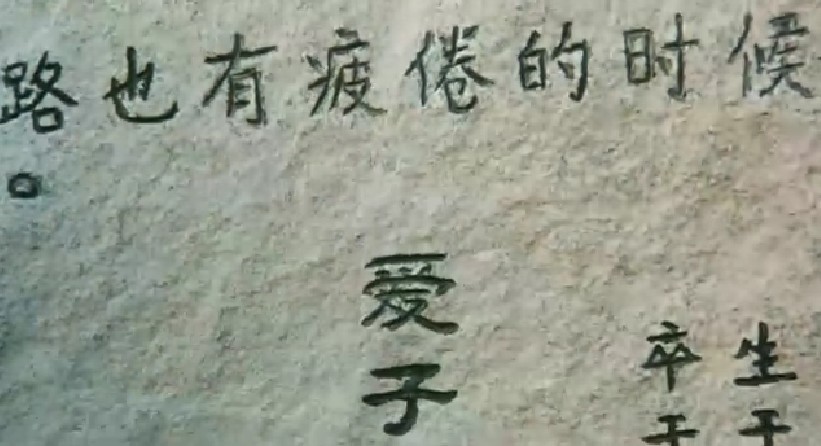 路也有疲倦的时候
。
爱子
生于
卒于